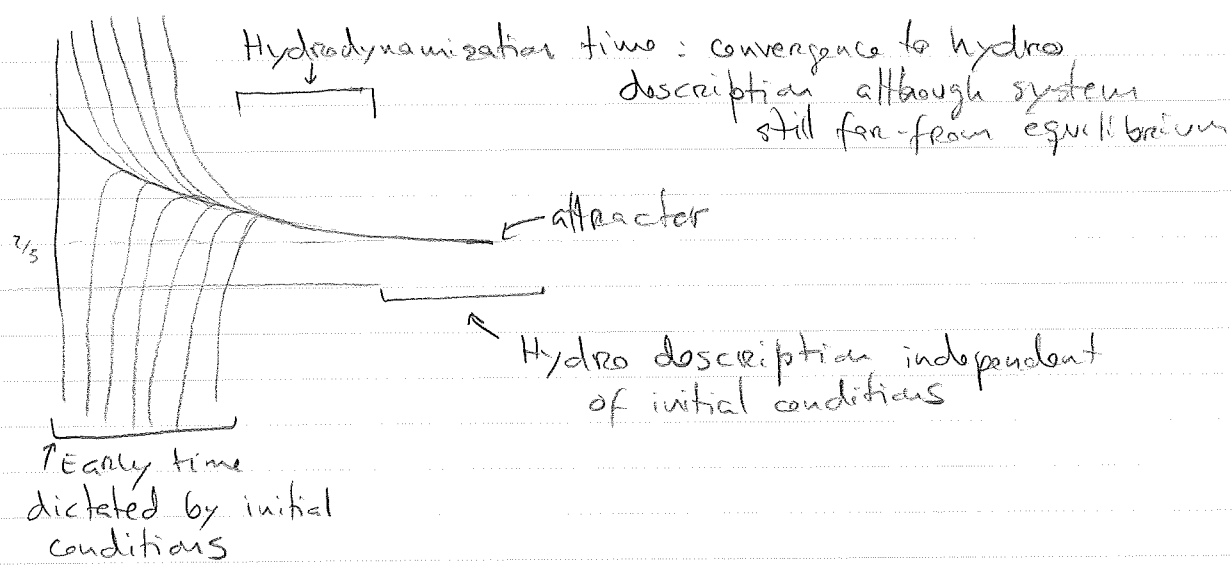 Hydrodynamization time : convergence to hydro
description although system
still far-from equilibrium
attractor
2/3
Hydro description independent
of initial conditions
Early time
dictated by initial
conditions